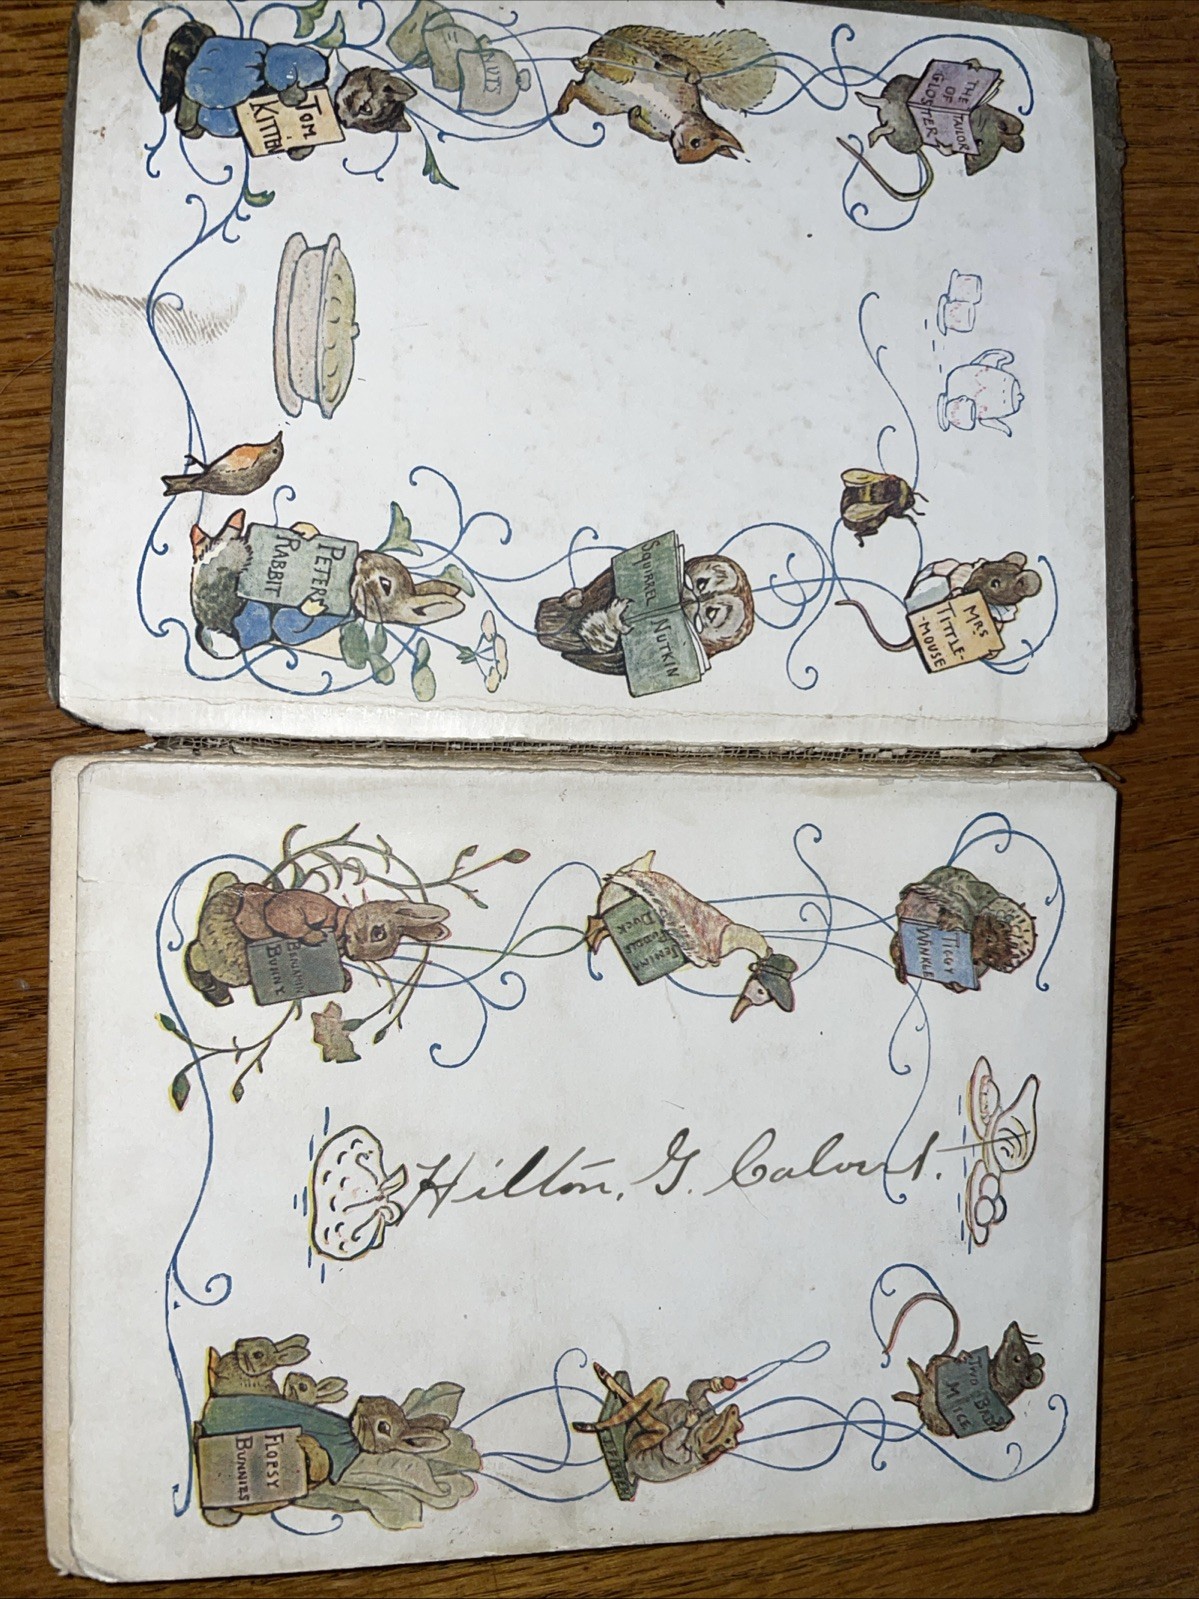 THE TAILOR
OF
GLOSTER
MRS
TITTLE-
-MOUSE
NUTS
SQUIRREL NUTKIN
TOM
KITTEN
PETER
RABBIT
TIGGY
WINKLE
TWO BAD
MICE
JEMIMA
PUDDLE
DUCK
BENJAMIN
BUNNY
FLOPSY
BUNNIES
Hilton. G. Calvert.